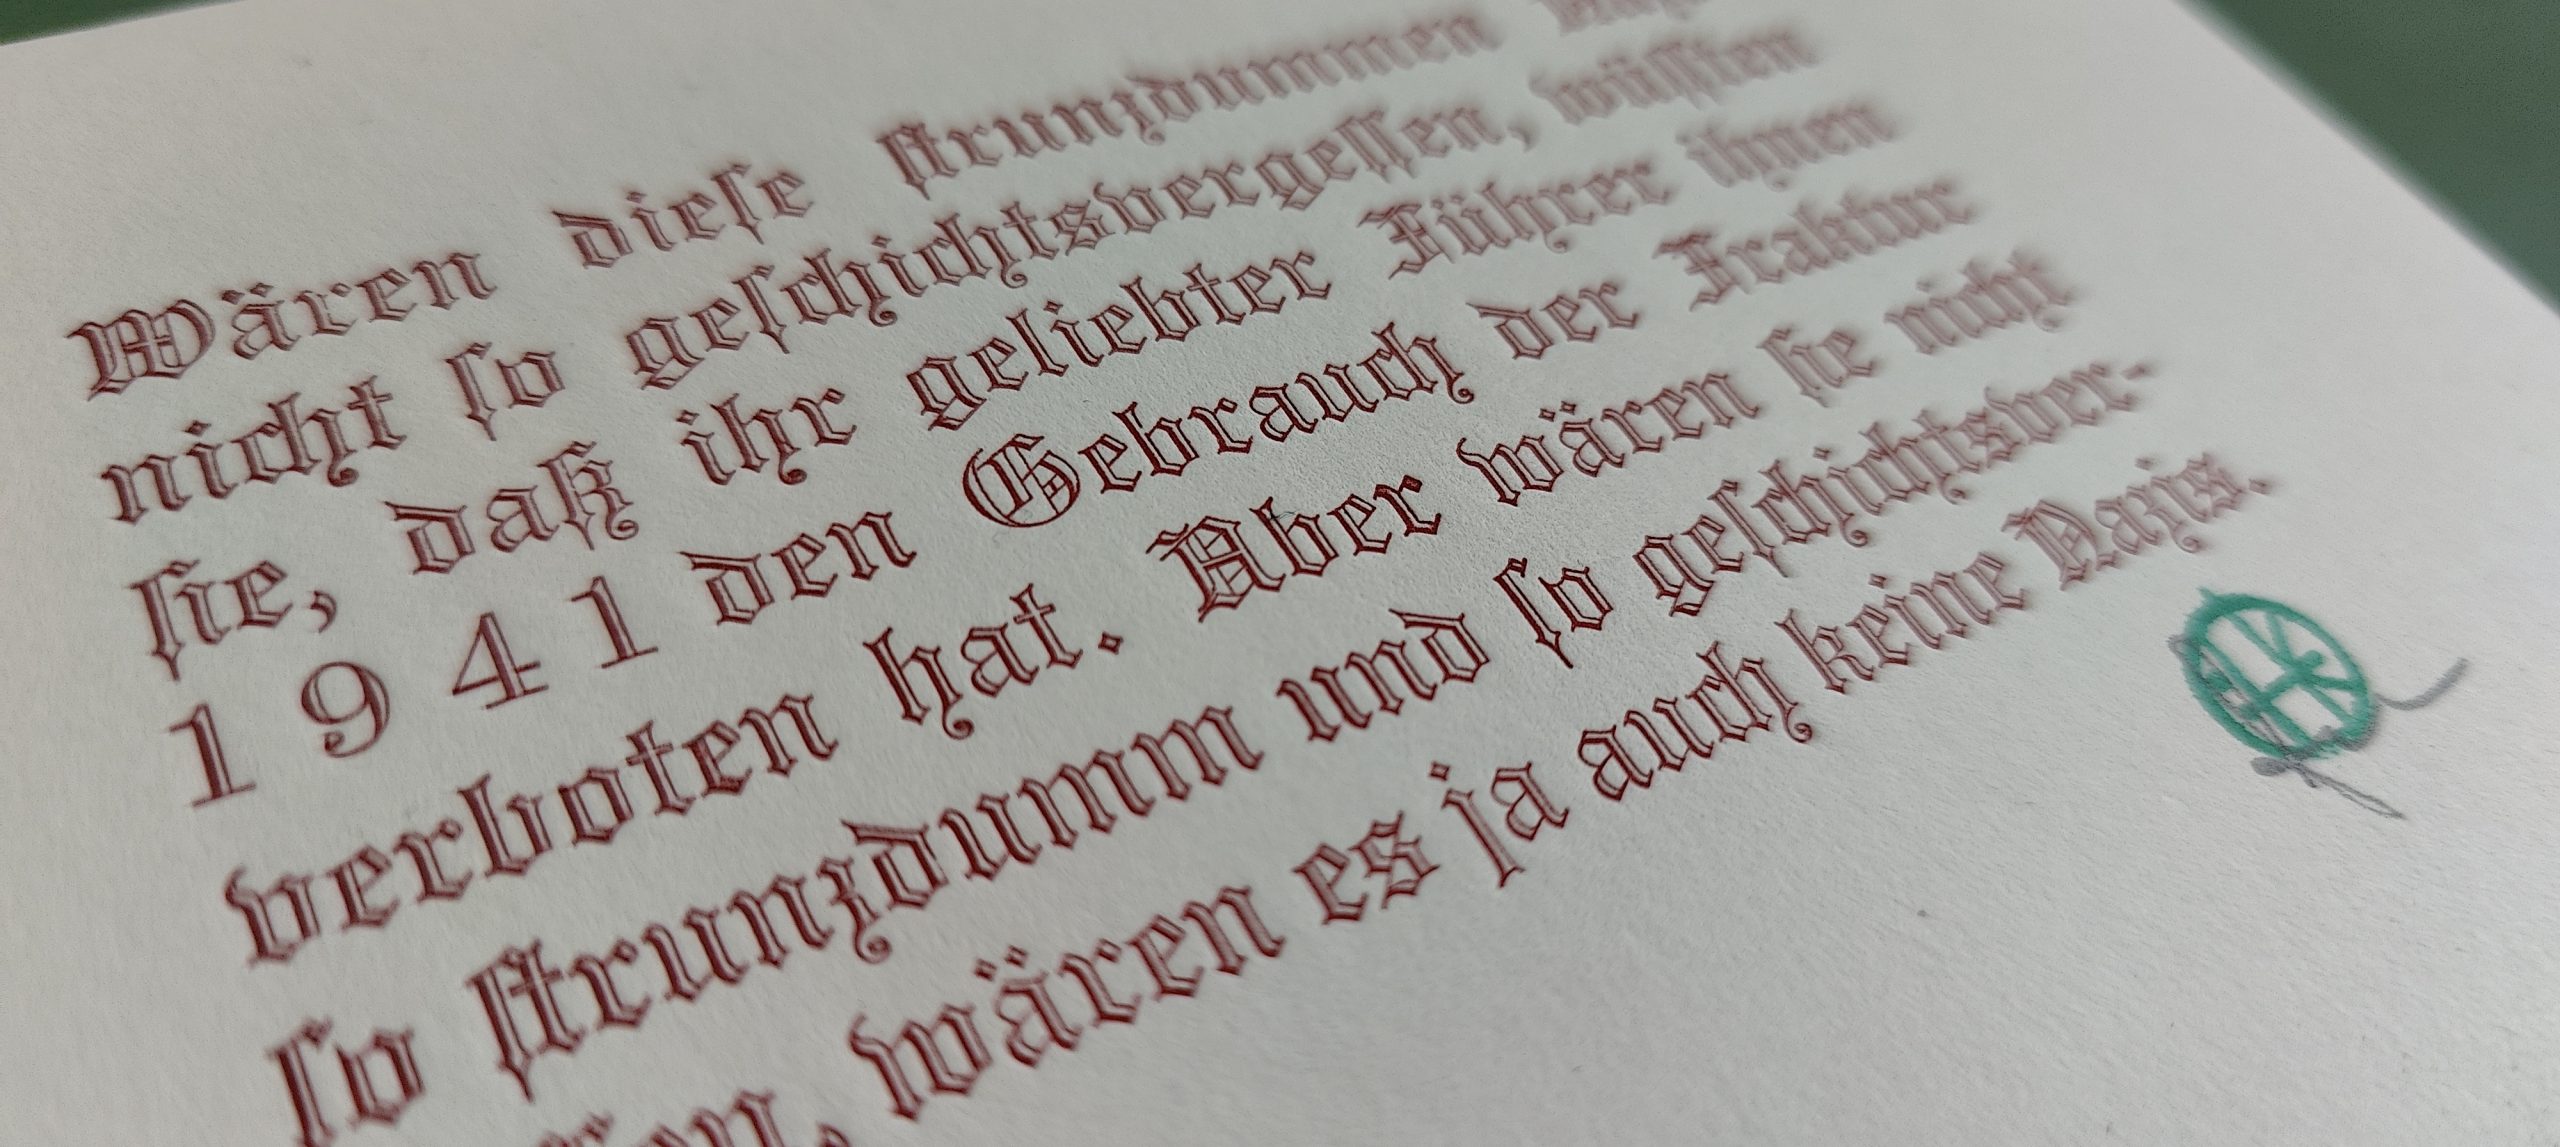 Wären dieſe ſtrunzdummen
nicht ſo geſchichtsvergeſſen, wüſſten
ſie, daß ihr geliebter Führer ihnen
1941 den Gebrauch der Fraktur
verboten hat. Aber wären ſie nicht
ſo ſtrunzdumm und ſo geſchichtsver-
wären es ja auch keine Nazis.